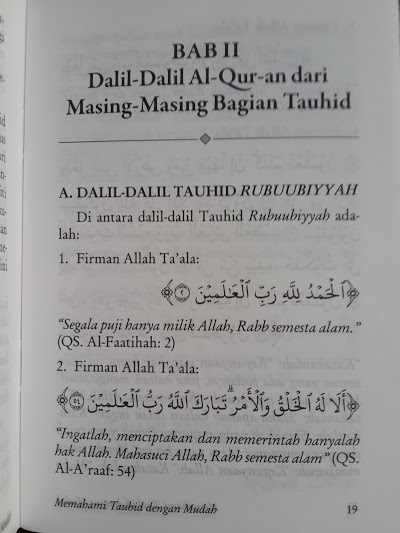 BAB II
Dalil-Dalil Al-Qur-an dari
Masing-Masing Bagian Tauhid
A. DALIL-DALIL TAUHID RUBUUBIYYAH
Di antara dalil-dalil Tauhid Rubuubiyyah ada-
lah:
1. Firman Allah Ta'ala:
﴿ٱلْحَمْدُ لِلَّهِ رَبِّ ٱلْعَـٰلَمِينَ ٢﴾
"Segala puji hanya milik Allah, Rabb semesta alam."
(QS. Al-Faatihah: 2)
2. Firman Allah Ta'ala:
﴿أَلَا لَهُ ٱلْخَلْقُ وَٱلْأَمْرُ ۗ تَبَارَكَ ٱللَّهُ رَبُّ ٱلْعَـٰلَمِينَ ٥٤﴾
"Ingatlah, menciptakan dan memerintah hanyalah
hak Allah. Mahasuci Allah, Rabb semesta alam" (QS.
Al-A'raaf: 54)
Memahami Tauhid dengan Mudah 19